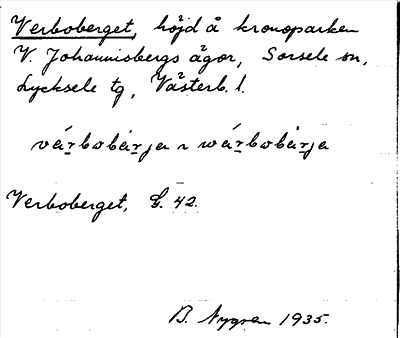 Verboberget, höjd å kronoparken
V. Johannisbergs ägor, Sorsele sn,
Lycksele tg, Västerb. l.
várbobàrja ~ wárbobàrja
Verboberget, G. 42.
B. Nygren 1935.